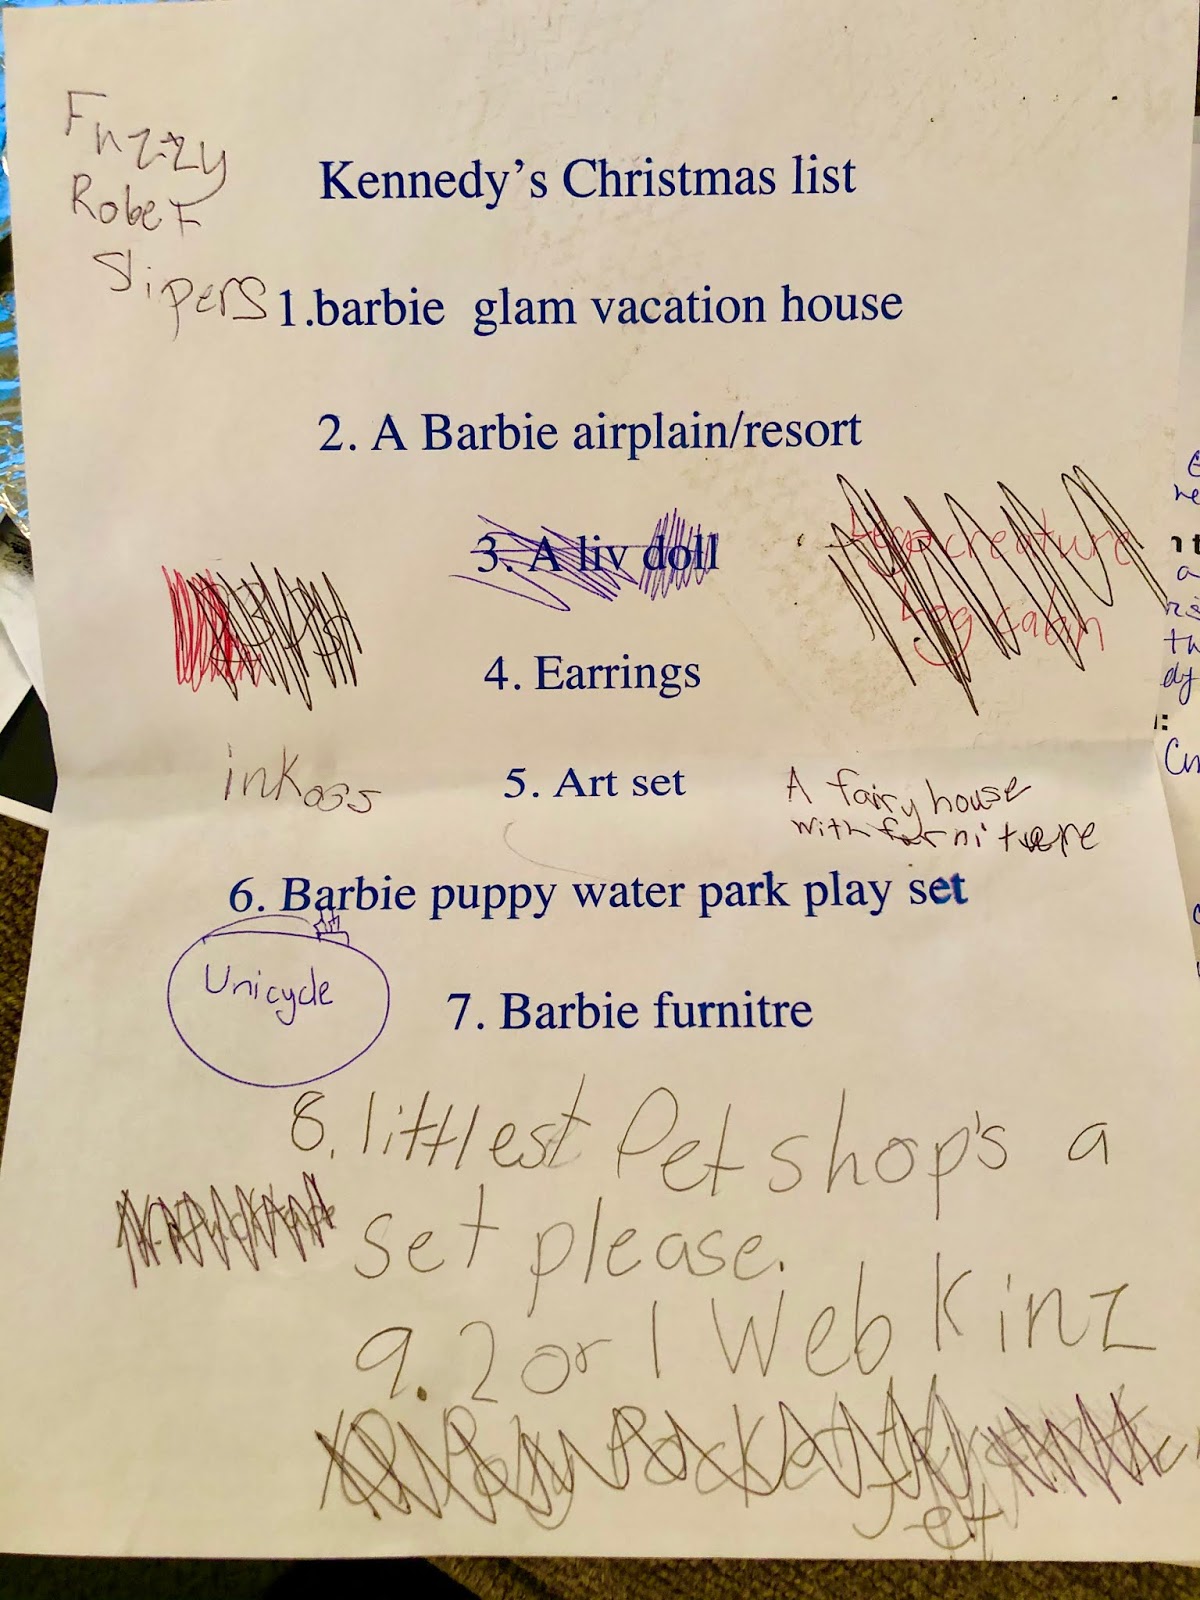 Fuzzy
Robe F
Slipers
Kennedy's Christmas list
1.barbie glam vacation house
2. A Barbie airplain/resort
3. A liv doll
creature
Log cabin
4. Earrings
inkoss
5. Art set
A fairy house
with furniture
6. Barbie puppy water park play set
Unicycle
7. Barbie furnitre
8. littlest Pet shop's a
set please.
9. 2 or 1 Web Kinz
Jet